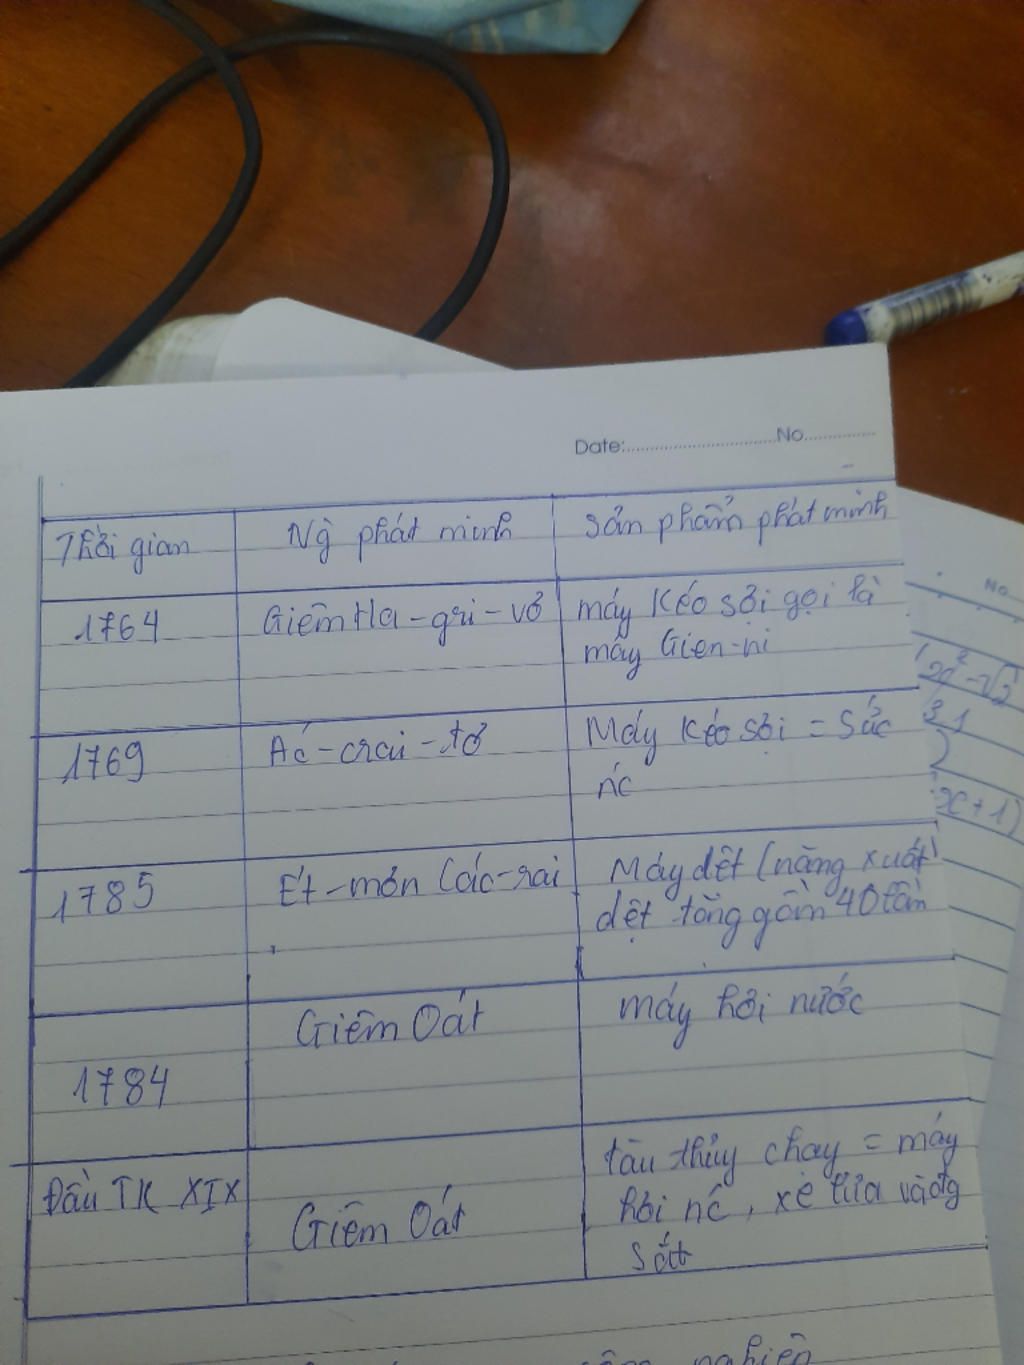 Date:............................No...............
Thời gian Ng phát minh Sản phẩm phát minh
1764 Giêm Ha-gri-vơ máy kéo sợi gọi là
máy Gien-ni
1769 Ác-crai-tơ Máy kéo sợi = sức
nc
1785 Ét-mơn Các-rai Máy dệt (năng xuất
dệt tăng gần 40 lần
Giêm Oát máy hơi nước
1784
Đầu TK XIX Giêm Oát tàu thủy chạy = máy
hơi nc, xe lửa và đg
sắt
nghiên
No
3 1
)
x + 1)